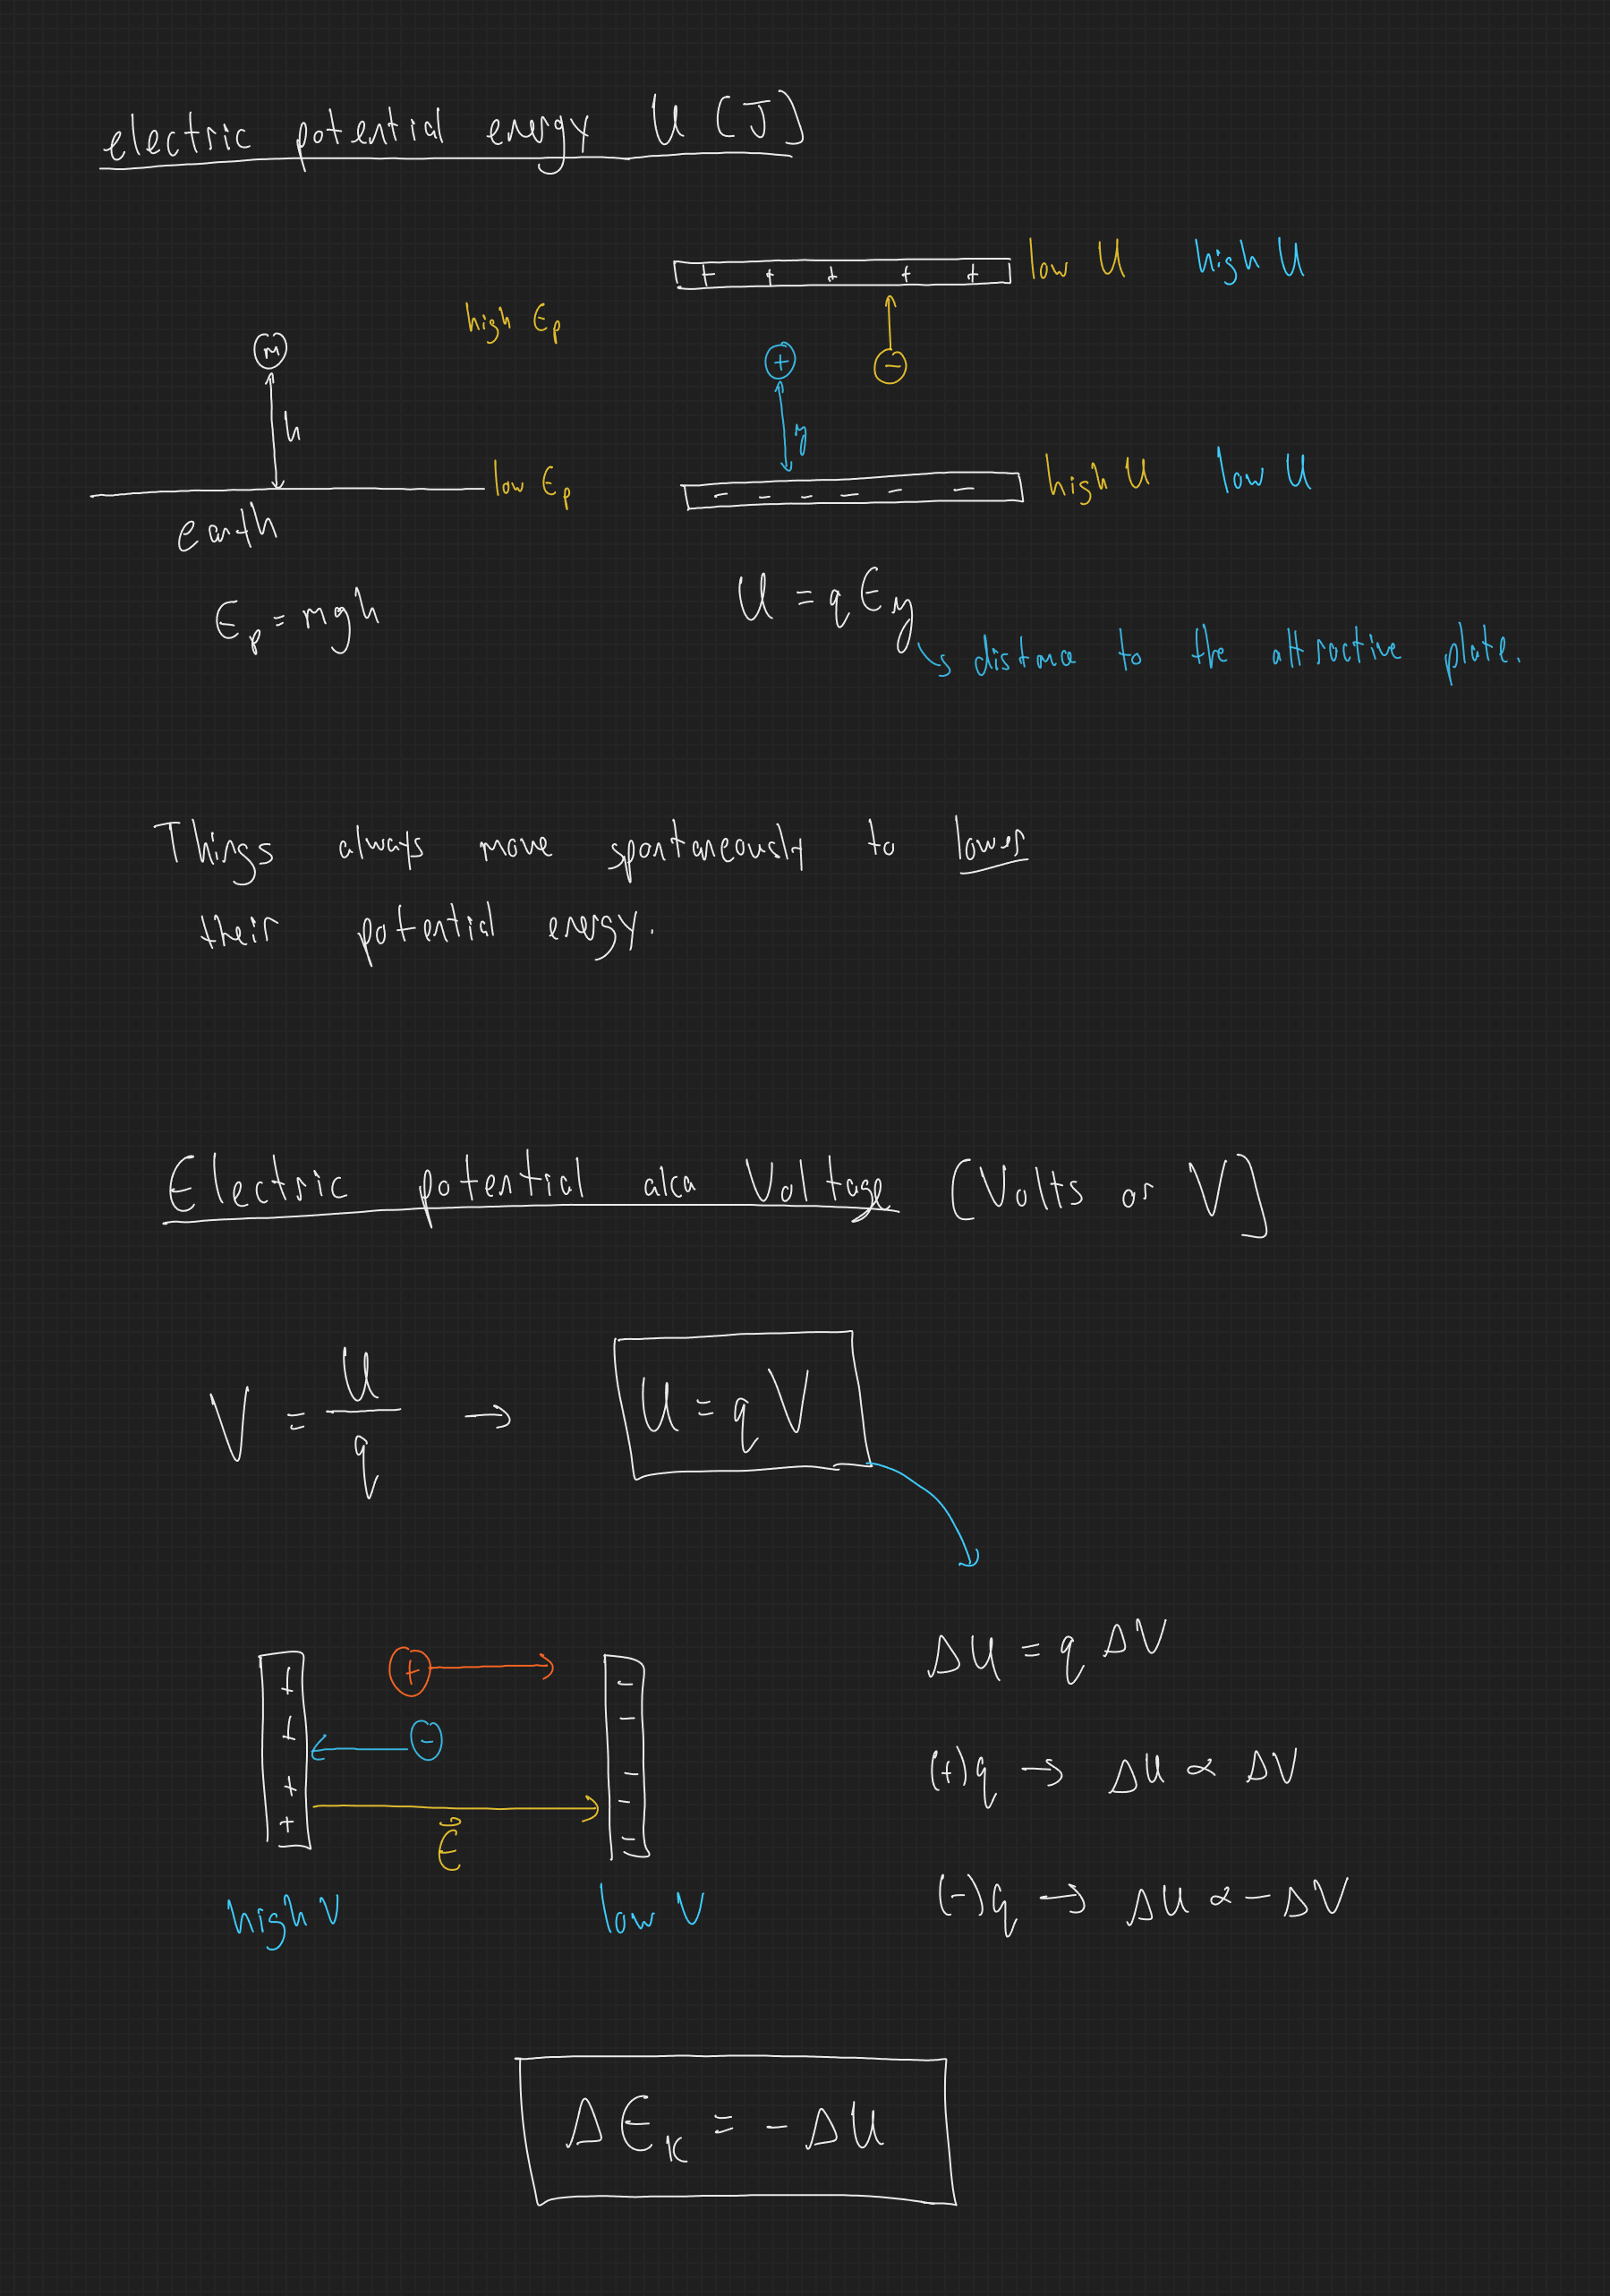 electric potential energy U (J)
+ + + + + low U high U
high Ep
m + -
h y
- - - - - - high U low U
low Ep
earth
Ep = mgh
U = qEy
distance to the attractive plate.
Things always move spontaneously to lower
their potential energy.
Electric potential aka Voltage (Volts or V)
V = U/q → U = qV
ΔU = qΔV
+ + + +
+
-
E⃗
- - - - -
(+)q → ΔU ∝ ΔV
(-)q → ΔU ∝ -ΔV
high V low V
ΔEK = -ΔU